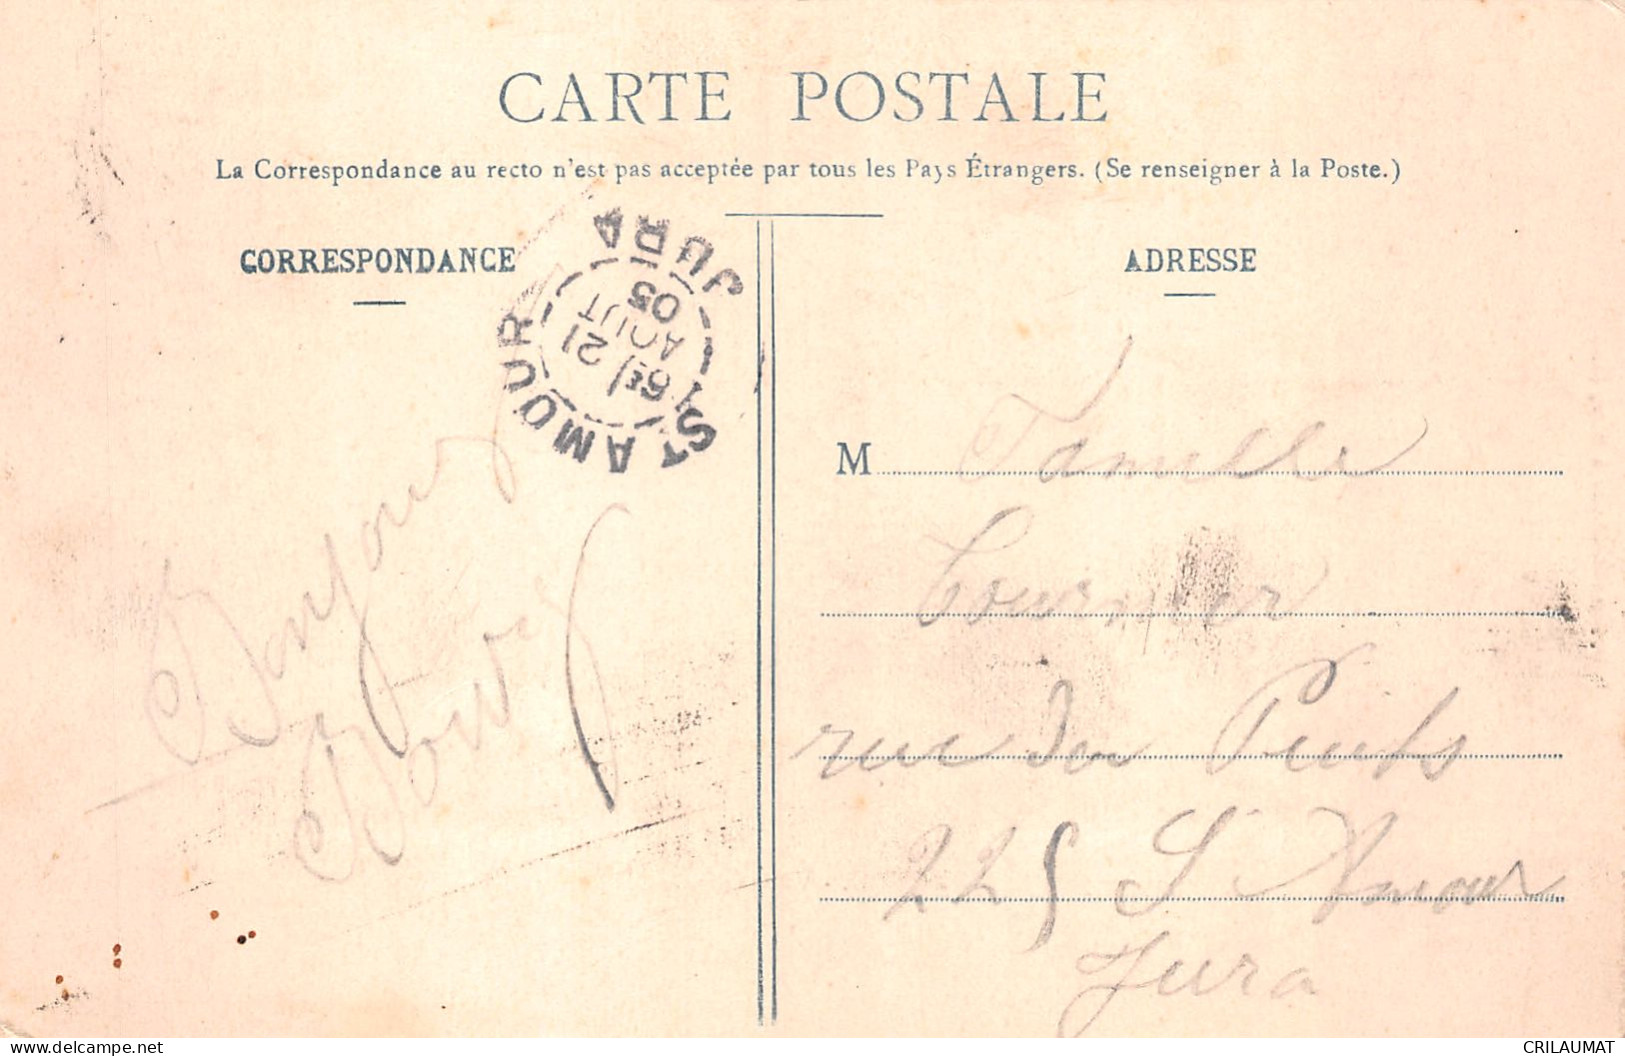 CARTE POSTALE
La Correspondance au recto n'est pas acceptée par tous les Pays Étrangers. (Se renseigner à la Poste.)
CORRESPONDANCE
ADRESSE
ST AMOUR JURA
6E 21 AOUT 05
Bonjour
M Famille
rue du Puits
225 St Amour
Jura
CRILAUMAT